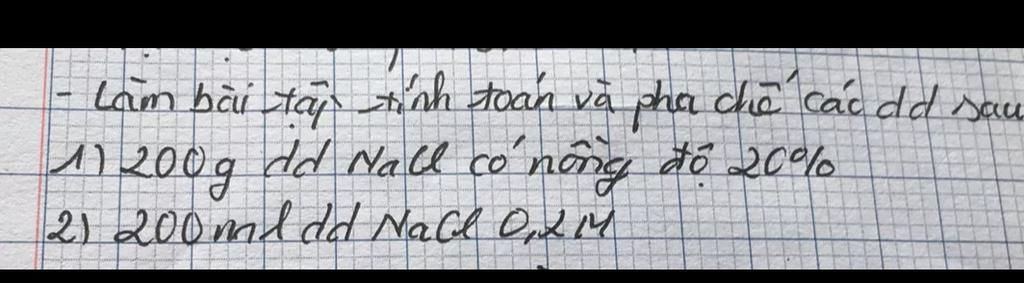 - Làm bài tập tính toán và pha chế các dd sau
1) 200g dd NaCl có nồng độ 20%
2) 200ml dd NaCl 0,2M